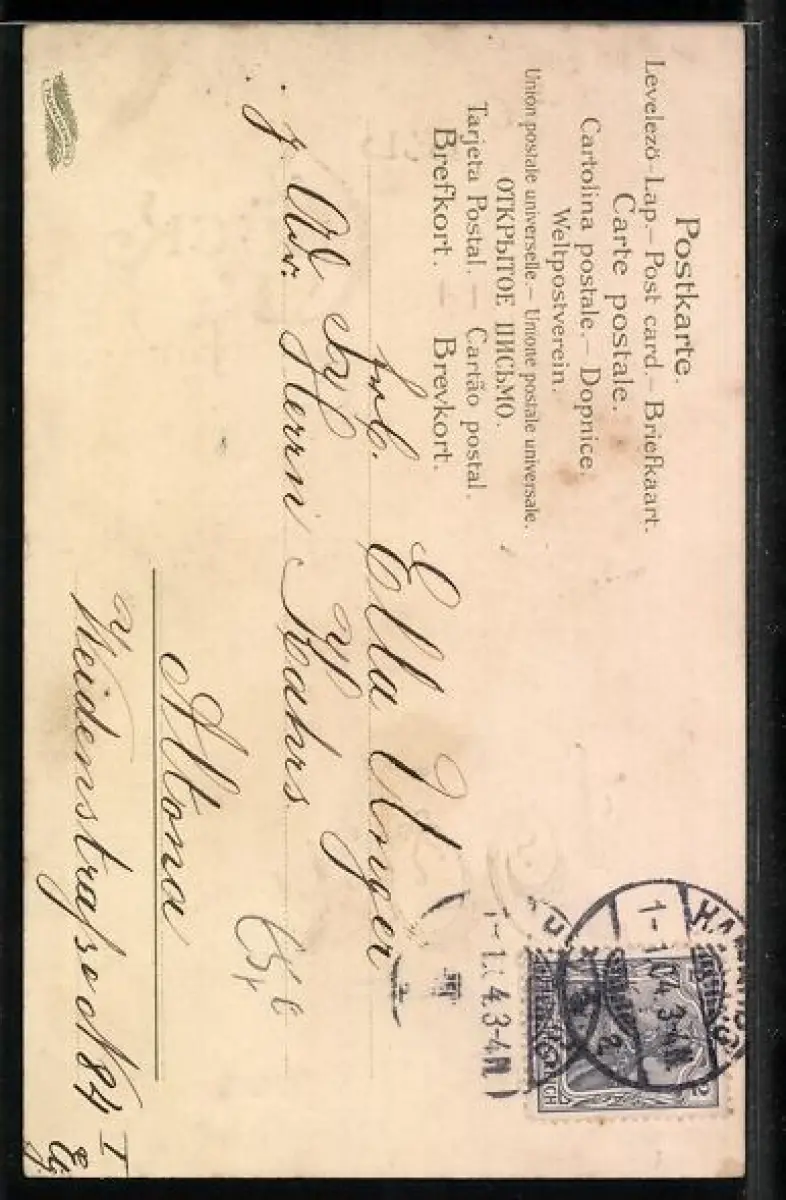 Postkarte.
Levelező-Lap.— Post card.— Briefkaart.
Carte postale.
Cartolina postale.— Dopnice.
Weltpostverein.
Union postale universelle.— Unione postale universale.
ОТКРЫТОЕ ПИСЬМО.
Tarjeta Postal. — Cartão postal.
Brefkort. — Brevkort.
1-1.04.3-4N.
2
1-1.04.3-4N.
Frl. Ella Unger
Adr. Herrn Kahrs
Altona
Weidenstraße N 84 I